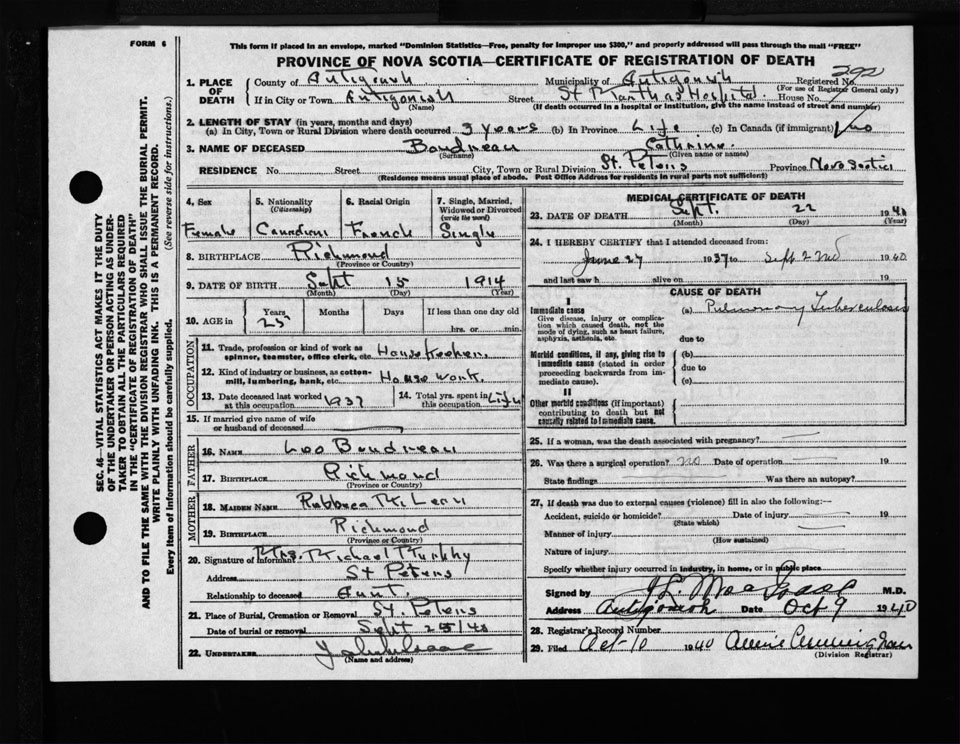 FORM 6
This form if placed in an envelope, marked "Dominion Statistics—Free, penalty for improper use $300," and properly addressed will pass through the mail "FREE"
PROVINCE OF NOVA SCOTIA—CERTIFICATE OF REGISTRATION OF DEATH
1. PLACE OF DEATH County of Antigonish Municipality of Antigonish Registered No. 292
(For use of Registrar General only)
If in City or Town Antigonish Street St Marthas Hospital. House No.
(Name) (If death occurred in a hospital or institution, give the name instead of street and number)
2. LENGTH OF STAY (in years, months and days)
(a) In City, Town or Rural Division where death occurred 3 years (b) In Province Life (c) In Canada (if immigrant) no
3. NAME OF DECEASED Boudreau Cathrine.
(Surname) (Given name or names)
RESIDENCE No. Street City, Town or Rural Division St. Peters Province Nova Scotia
(Residence means usual place of abode. Post Office Address for residents in rural parts not sufficient)
4. Sex Female
5. Nationality (Citizenship) Canadian
6. Racial Origin French
7. Single, Married, Widowed or Divorced (write the word) Single
8. BIRTHPLACE Richmond
(Province or Country)
9. DATE OF BIRTH Sept 15 1914
(Month) (Day) (Year)
10. AGE in Years 25 Months Days If less than one day old
hrs. or min.
OCCUPATION
11. Trade, profession or kind of work as spinner, teamster, office clerk, etc. Housekeeper.
12. Kind of industry or business, as cotton-mill, lumbering, bank, etc. House work.
13. Date deceased last worked at this occupation 1937
14. Total yrs. spent in this occupation Life
15. If married give name of wife or husband of deceased
FATHER
16. NAME Leo Boudreau
17. BIRTHPLACE Richmond
(Province or Country)
MOTHER
18. MAIDEN NAME
19. BIRTHPLACE Richmond
(Province or Country)
20. Signature of informant Mrs. Michael Murphy
Address St Peters
Relationship to deceased Aunt.
21. Place of Burial, Cremation or Removal St. Peters
Date of burial or removal Sept 25/40
22. UNDERTAKER
(Name and address)
MEDICAL CERTIFICATE OF DEATH
23. DATE OF DEATH Sept. 22 1940
(Month) (Day) (Year)
24. I HEREBY CERTIFY that I attended deceased from:
June 27 1937 to Sept 2nd 1940
and last saw h alive on 19
CAUSE OF DEATH
I
Immediate cause
Give disease, injury or complication which caused death, not the mode of dying, such as heart failure, asphyxia, asthenia, etc.
(a) Pulmonary Tuberculosis
due to
Morbid conditions, if any, giving rise to immediate cause (stated in order proceeding backwards from immediate cause).
(b)
due to
(c)
II
Other morbid conditions (if important) contributing to death but not causally related to immediate cause.
25. If a woman, was the death associated with pregnancy?
26. Was there a surgical operation? no Date of operation 19
State findings Was there an autopsy?
27. If death was due to external causes (violence) fill in also the following:—
Accident, suicide or homicide? Date of injury 19
(State which)
Manner of injury
(How sustained)
Nature of injury
Specify whether injury occurred in industry, in home, or in public place
Signed by M.D.
Address Antigonish Date Oct 9 1940
28. Registrar's Record Number
29. Filed Oct 10 1940
(Division Registrar)
SEC. 46—VITAL STATISTICS ACT MAKES IT THE DUTY
OF THE UNDERTAKER OR PERSON ACTING AS UNDERTAKER
TO OBTAIN ALL THE PARTICULARS REQUIRED
IN THE "CERTIFICATE OF REGISTRATION OF DEATH"
AND TO FILE THE SAME WITH THE DIVISION REGISTRAR WHO SHALL ISSUE THE BURIAL PERMIT.
WRITE PLAINLY WITH UNFADING INK. THIS IS A PERMANENT RECORD.
Every item of information should be carefully supplied. (See reverse side for instructions.)